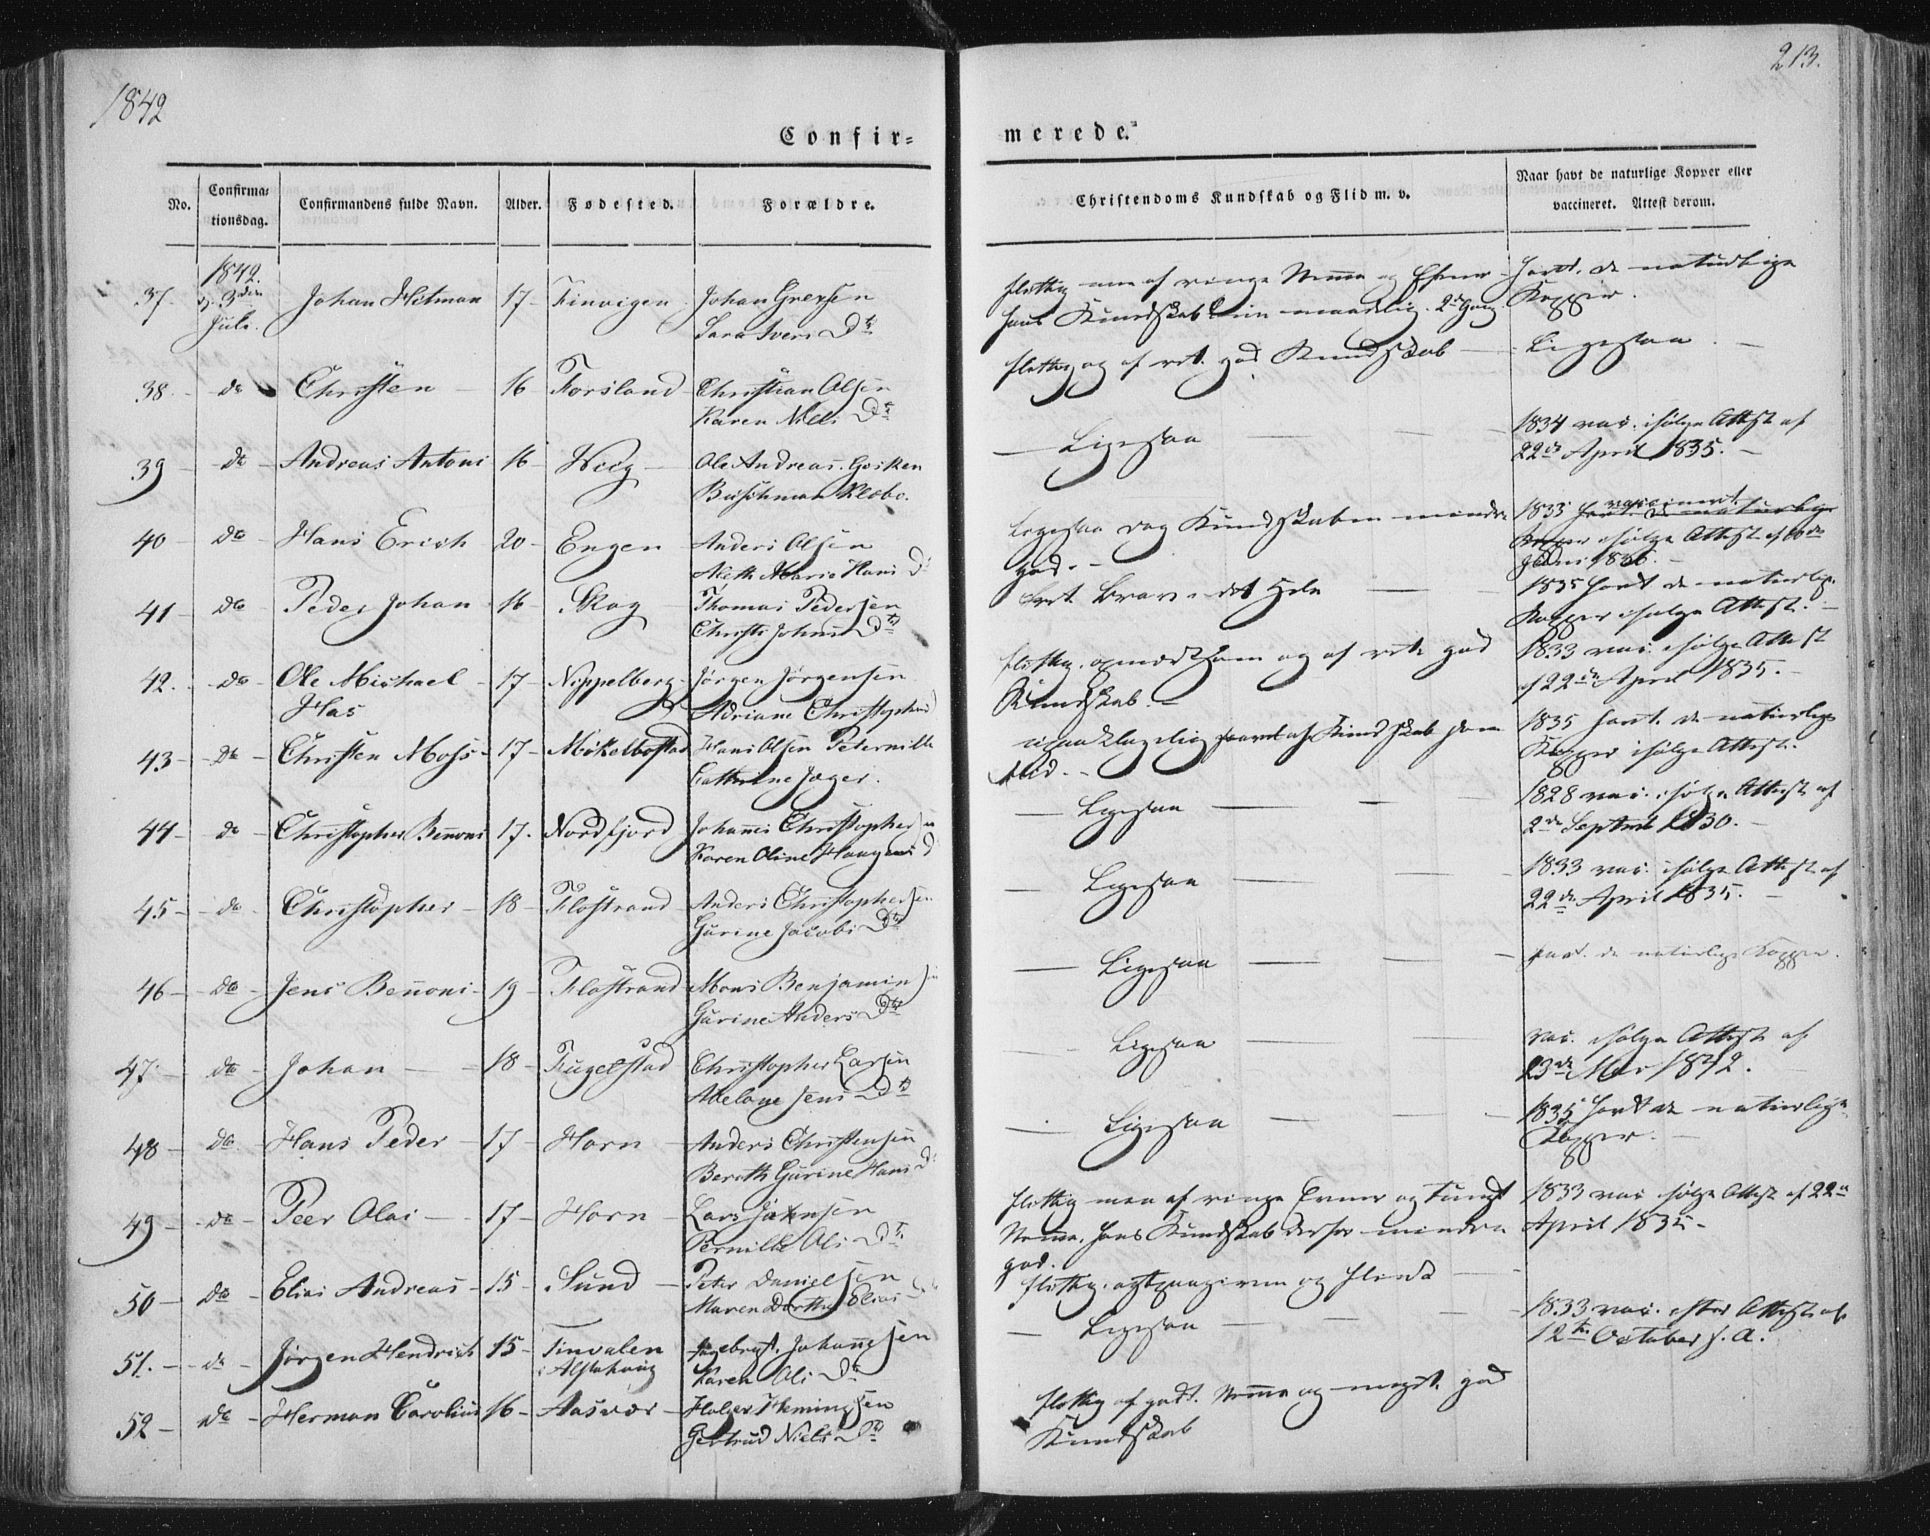 1842
213.
Confir=
merede.
No.
Confirma=
tionsdag.
Confirmandens fulde Navn.
Alder.
Fødested.
Forældre.
Christendoms Kundskab og Flid m. v.
Naar havt de naturlige Kopper eller
vaccineret. Attest derom.
1842.
37. d. 3die Johan Hitman 17 Finvigen Johan Grersen
Juli. Sara Ivers Dtr
flittig men af ringe Nemme og Evner havt de naturlige
hans Kundskab maadelig. 2d Gang Kopper.
38. do Christen 16 Forsland Christian Olsen
Karen Niels Dtr
flittig og af ret god Kundskab Ligesaa
39 do Andreas Antoni 16 Hiig Ole Andreas
Buschman Klæbo.
Ligesaa 1834 vac. ifølge Attest af
22de April 1835.
40 do Hans Erich 20 Engen Anders Olsen
Marie Hans D
Ligesaa dog Kundskaben mindre 1833 vaccineret
god. ifølge Attest af
Juni 1836.
41 do Peder Johan 16 Skag Thomas Pedersen
Dtr
Brav i det Hele 1835 havt de naturlige
Kopper ifølge Attest.
42. do Ole Michael 17 Nippelberg Jørgen Jørgensen
Has Adriane Christophers
flittig, opmærksom og af ret god 1833 vac. ifølge Attest
Kundskab. af 22de April 1835.
43 do Christen Moss 17 Mikelbostad Hans Olsen Peternille
Cathrine Jæger.
Kundskab som 1835 havt de naturlige
Flid. Kopper ifølge Attest.
44 do Christopher Bennoni 17. Nordfjord Johannes Christophersen
Karen Oline Haagens D
Ligesaa 1828 vac. ifølge Attest af
2de Septmb 1830.
45 do Christopher 18 Flostrand Anders Christophersen
Gurine Jacobs Dtr
Ligesaa 1833 vac. ifølge Attest af
22de April 1835.
46 do Jens Bennoni 19 Flostrand Mons Benjaminsen
Gurine Anders Dtr
Ligesaa havt de naturlige Kopper.
47. do Johan 18 Fugelstad Christopher Larsen
Abelone Jens Dtr
Ligesaa vac. ifølge Attest af
23de Mai 1842.
48 do Hans Peder 17 Horn Anders Christensen
Bereth Gurine Hans D
Ligesaa 1835 havt de naturlige
Kopper.
49 do Peer Olai 17 Horn Lars Johnsen
Pernille Ols Dtr
flittig men af ringe Evner og tungt 1833 vac. ifølge Attest af 22de
Nemme, hans Kundskab derfor mindre April 1835
god.
50 do Elias Andreas 15 Sund Peter Danielsen
Maren Dorthe Elias
flittig, og
51. do Jørgen Hendrich 15 Tinvalen Ingebrigt Johannesen
i Alstahoug Karen Ols Dtr
Ligesaa 1833 vac. efter Attest af
12te October s. A.
52 do Herman Carolius 16 Aasvær Heminsen
Gertrud Niels Dtr
flittig af godt Nemme og meget god
Kundskab